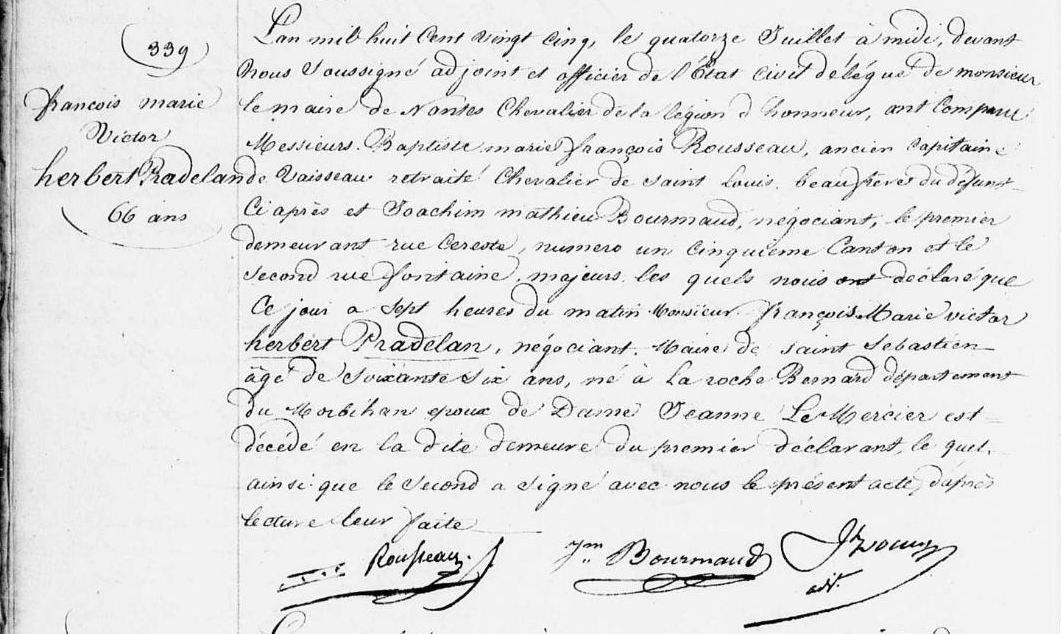 339
françois marie
Victor
herbert Pradelan
66 ans
L'an mil huit Cent vingt cinq, le quatorze Juillet à midi, devant
Nous Soussigné adjoint et officier de l'État Civil délégué de monsieur
le maire de Nantes Chevalier de la légion d'honneur, ont Comparu
Messieurs Baptiste marie françois Rousseau, ancien Capitaine
de Vaisseau retraité Chevalier de saint Louis, beaufrère du défunt
Ci après et Joachim mathieu Bourmaud, négociant, le premier
demeurant rue Cereste, numero un Cinquieme Canton et le
Second rue fontaine, majeurs, les quels nous ont déclaré que
Ce jour a Sept heures du matin Monsieur françois Marie victor
herbert Pradelan, négociant, Maire de saint Sebastien
âgé de Soixante Six ans, né à La roche Bernard département
du Morbihan epoux de Dame Jeanne Le Mercier est
décédé en la dite demeure du premier déclarant, le quel,
ainsi que le Second a Signé avec nous le présent acte, d'après
lecture leur faite
Rousseau
Jm Bourmaud
adt.